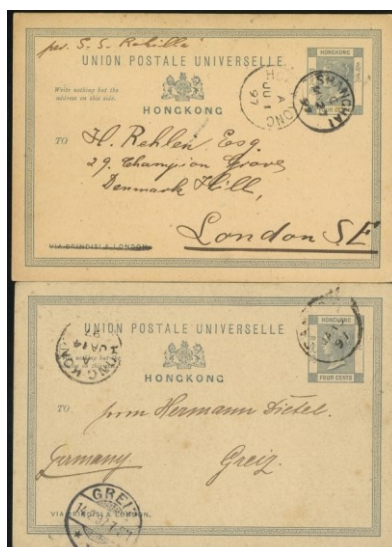 per S. S. Rohilla
UNION POSTALE UNIVERSELLE
HONGKONG
Write nothing but the
address on this side.
HONGKONG
SHANGHAI
A
JU 1
97
TO
H. Rehlen Esq.
29. Champion Grove
Denmark Hill,
London SE
VIA BRINDISI & LONDON.
UNION POSTALE UNIVERSELLE
HONGKONG
HONGKONG
FOUR CENTS
HONG KONG
A
JA 14
TO
Herrn Hermann Dietel.
Germany
Greiz.
GREIZ
VIA BRINDISI & LONDON.